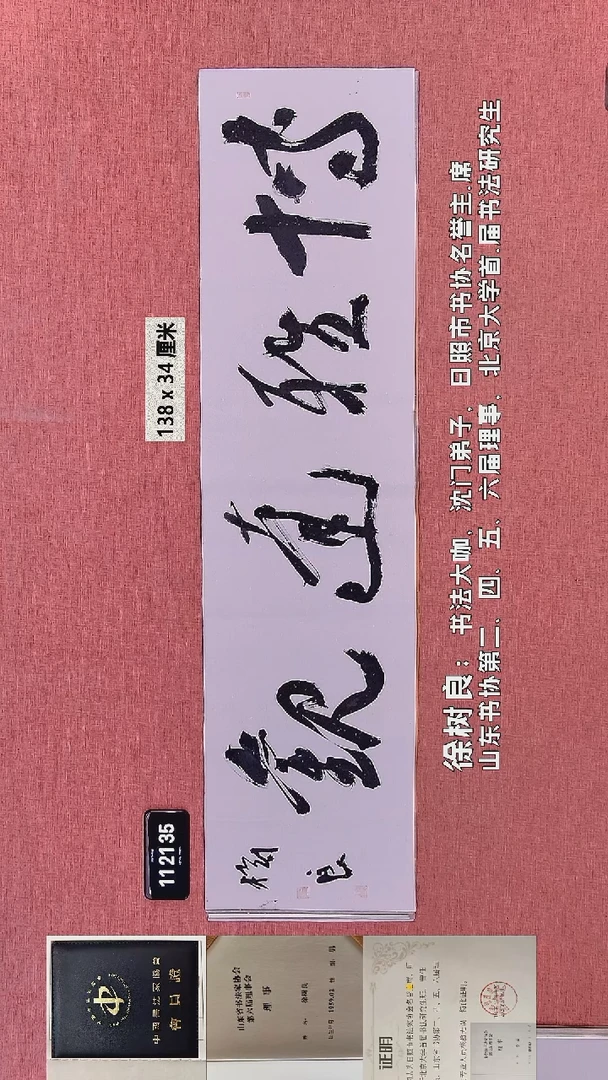 138 x 34 厘米
博雅達觀
樹良
徐树良：书法大咖、沈门弟子、日照市书协名誉主.席
山东书协第二、四、五、六届理事、北京大学首.届书法研究生
11 21 35
中國書法家協會
會員證
山东省书法家协会
第六届理事会
理 事
证明